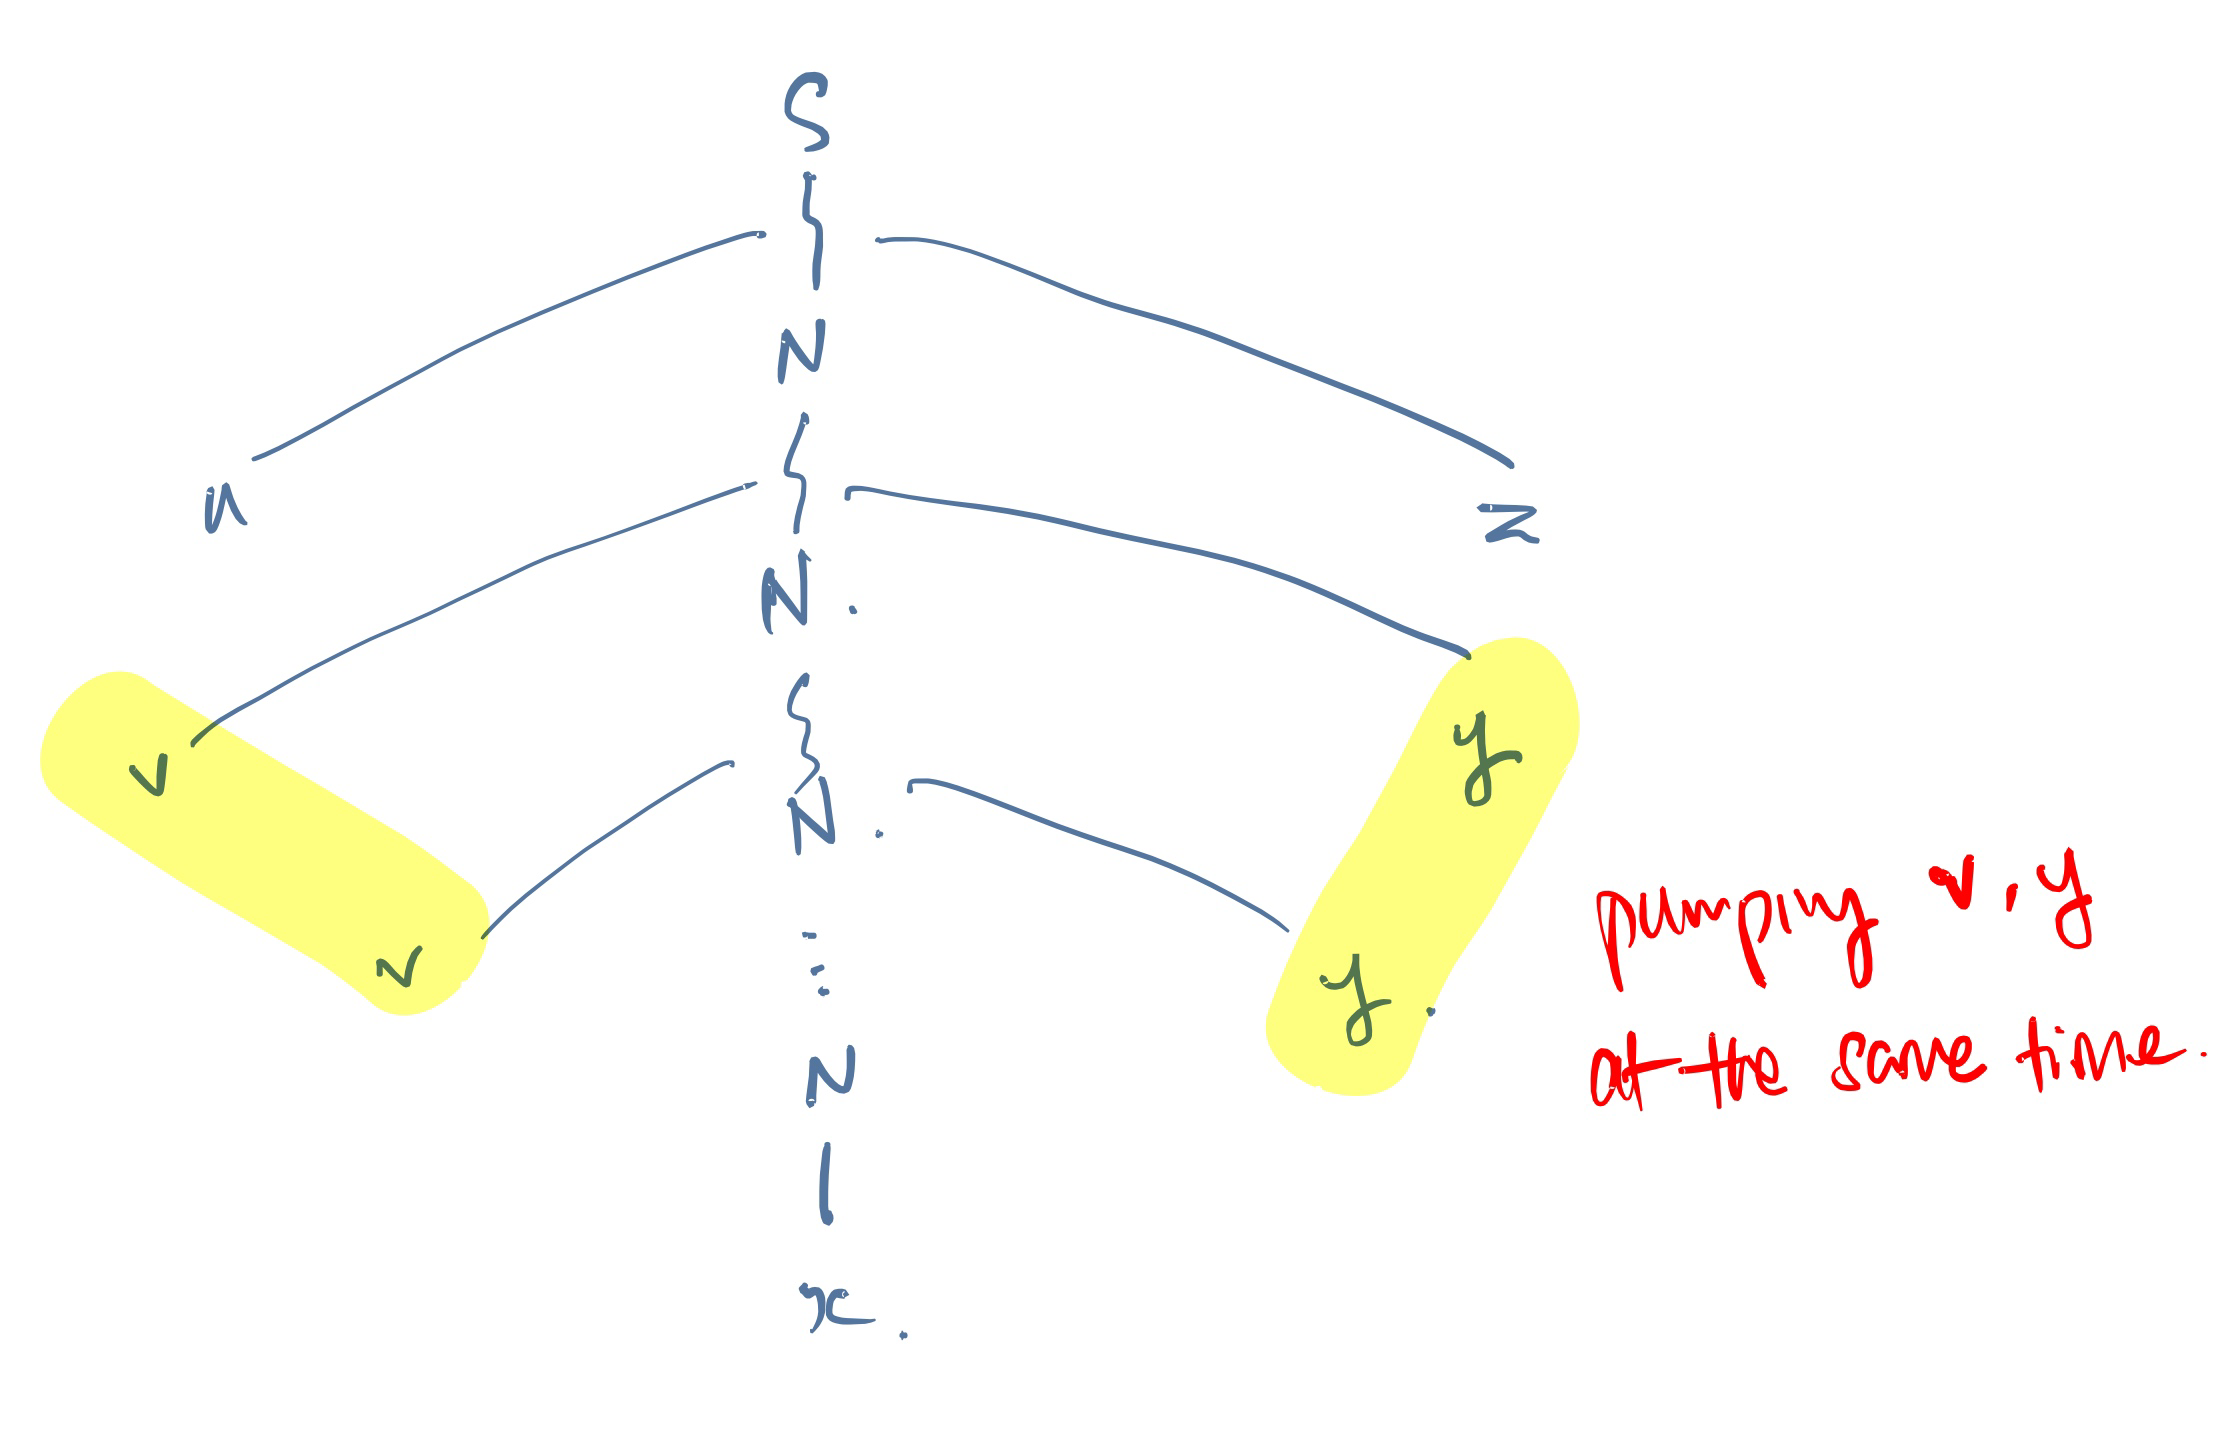 S
N
u z
N.
v y
N.
v y.
pumping v, y
at the same time.
N
x.